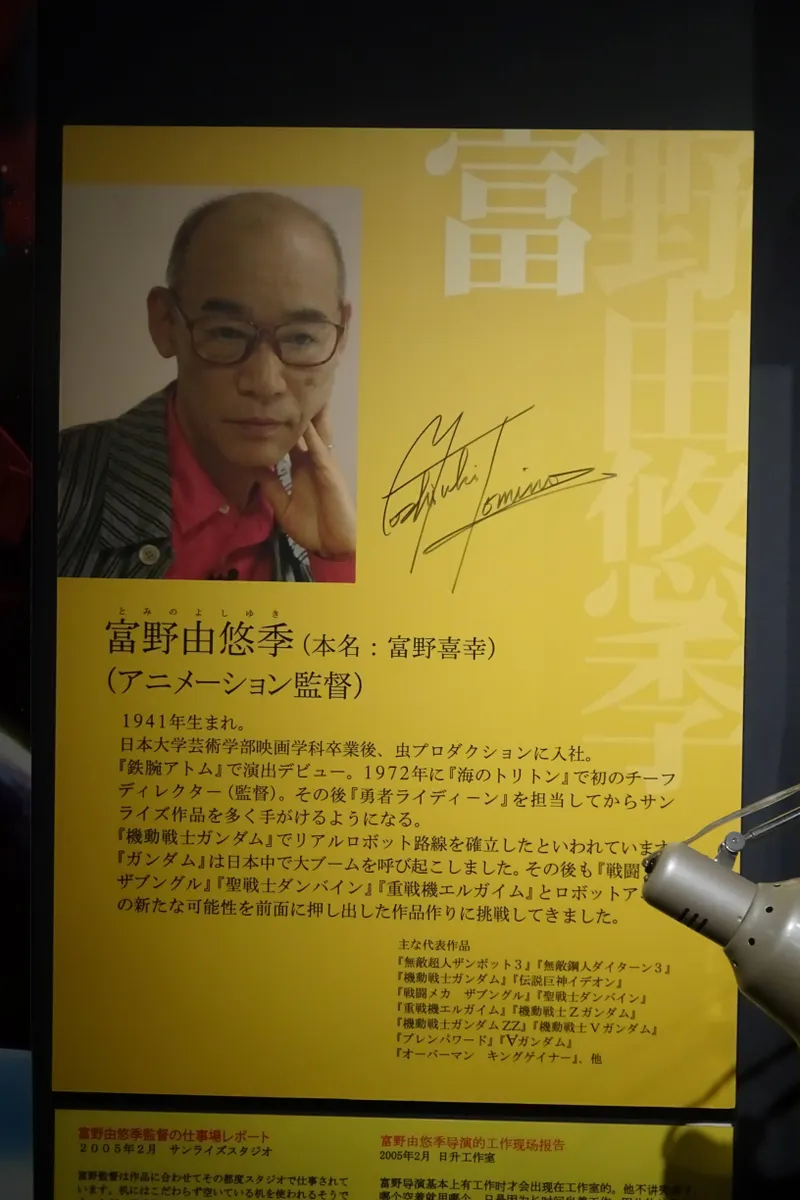 富野由悠季
Yoshiyuki Tomino
とみのよしゆき
富野由悠季(本名：富野喜幸)
(アニメーション監督)
1941年生まれ。
日本大学芸術学部映画学科卒業後、虫プロダクションに入社。
『鉄腕アトム』で演出デビュー。1972年に『海のトリトン』で初のチーフ
ディレクター(監督)。その後『勇者ライディーン』を担当してからサン
ライズ作品を多く手がけるようになる。
『機動戦士ガンダム』でリアルロボット路線を確立したといわれています
『ガンダム』は日本中で大ブームを呼び起こしました。その後も『戦闘
ザブングル』『聖戦士ダンバイン』『重戦機エルガイム』とロボットア
の新たな可能性を前面に押し出した作品作りに挑戦してきました。
主な代表作品
『無敵超人ザンボット3』『無敵鋼人ダイターン3』
『機動戦士ガンダム』『伝説巨神イデオン』
『戦闘メカ　ザブングル』『聖戦士ダンバイン』
『重戦機エルガイム』『機動戦士Zガンダム』
『機動戦士ガンダムZZ』『機動戦士Vガンダム』
『ブレンパワード』『∀ガンダム』
『オーバーマン　キングゲイナー』、他
富野由悠季監督の仕事場レポート
2005年2月　サンライズスタジオ
富野監督は作品に合わせてその都度スタジオで仕事されて
います。机にはこだわらず空いている机を使われるそうで
富野由悠季导演的工作现场报告
2005年2月 日升工作室
富野导演基本上有工作时才会出现在工作室的。他不讲究